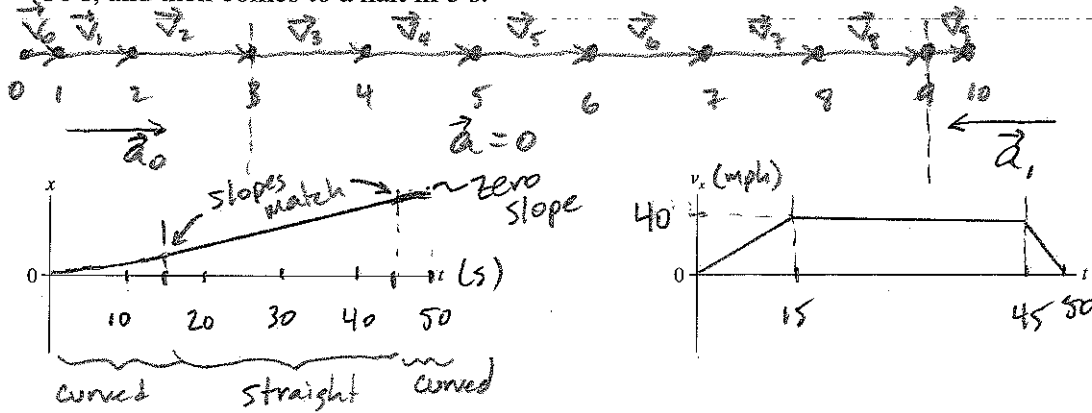 and then comes to a halt in 5 s.
v⃗0 v⃗1 v⃗2 v⃗3 v⃗4 v⃗5 v⃗6 v⃗7 v⃗8 v⃗9
0 1 2 3 4 5 6 7 8 9 10
a⃗0 a⃗ = 0 a⃗1
x
slopes match
zero slope
0
t (s)
10 20 30 40 50
curved straight curved
vx (mph)
40
0
t
15 45 50